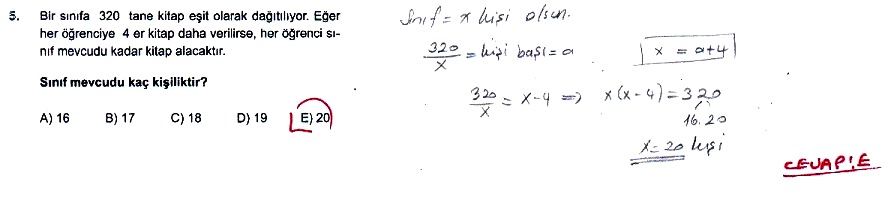 5. Bir sınıfa 320 tane kitap eşit olarak dağıtılıyor. Eğer
her öğrenciye 4 er kitap daha verilirse, her öğrenci sı-
nıf mevcudu kadar kitap alacaktır.
Sınıf mevcudu kaç kişiliktir?
A) 16 B) 17 C) 18 D) 19 E) 20
Sınıf = x kişi olsun.
320/x = kişi başı = a x = a+4
320/x = x-4 => x(x-4) = 320
16.20
x = 20 kişi
CEVAP: E